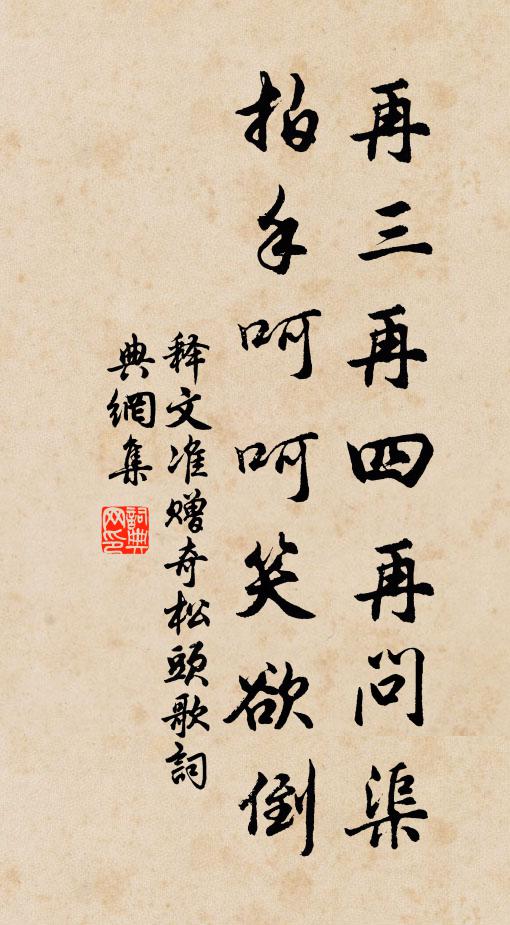 再三再四再问渠
拍手呵呵笑欲倒
释文准赠奇松頭歌詞
典網集
詞典网印